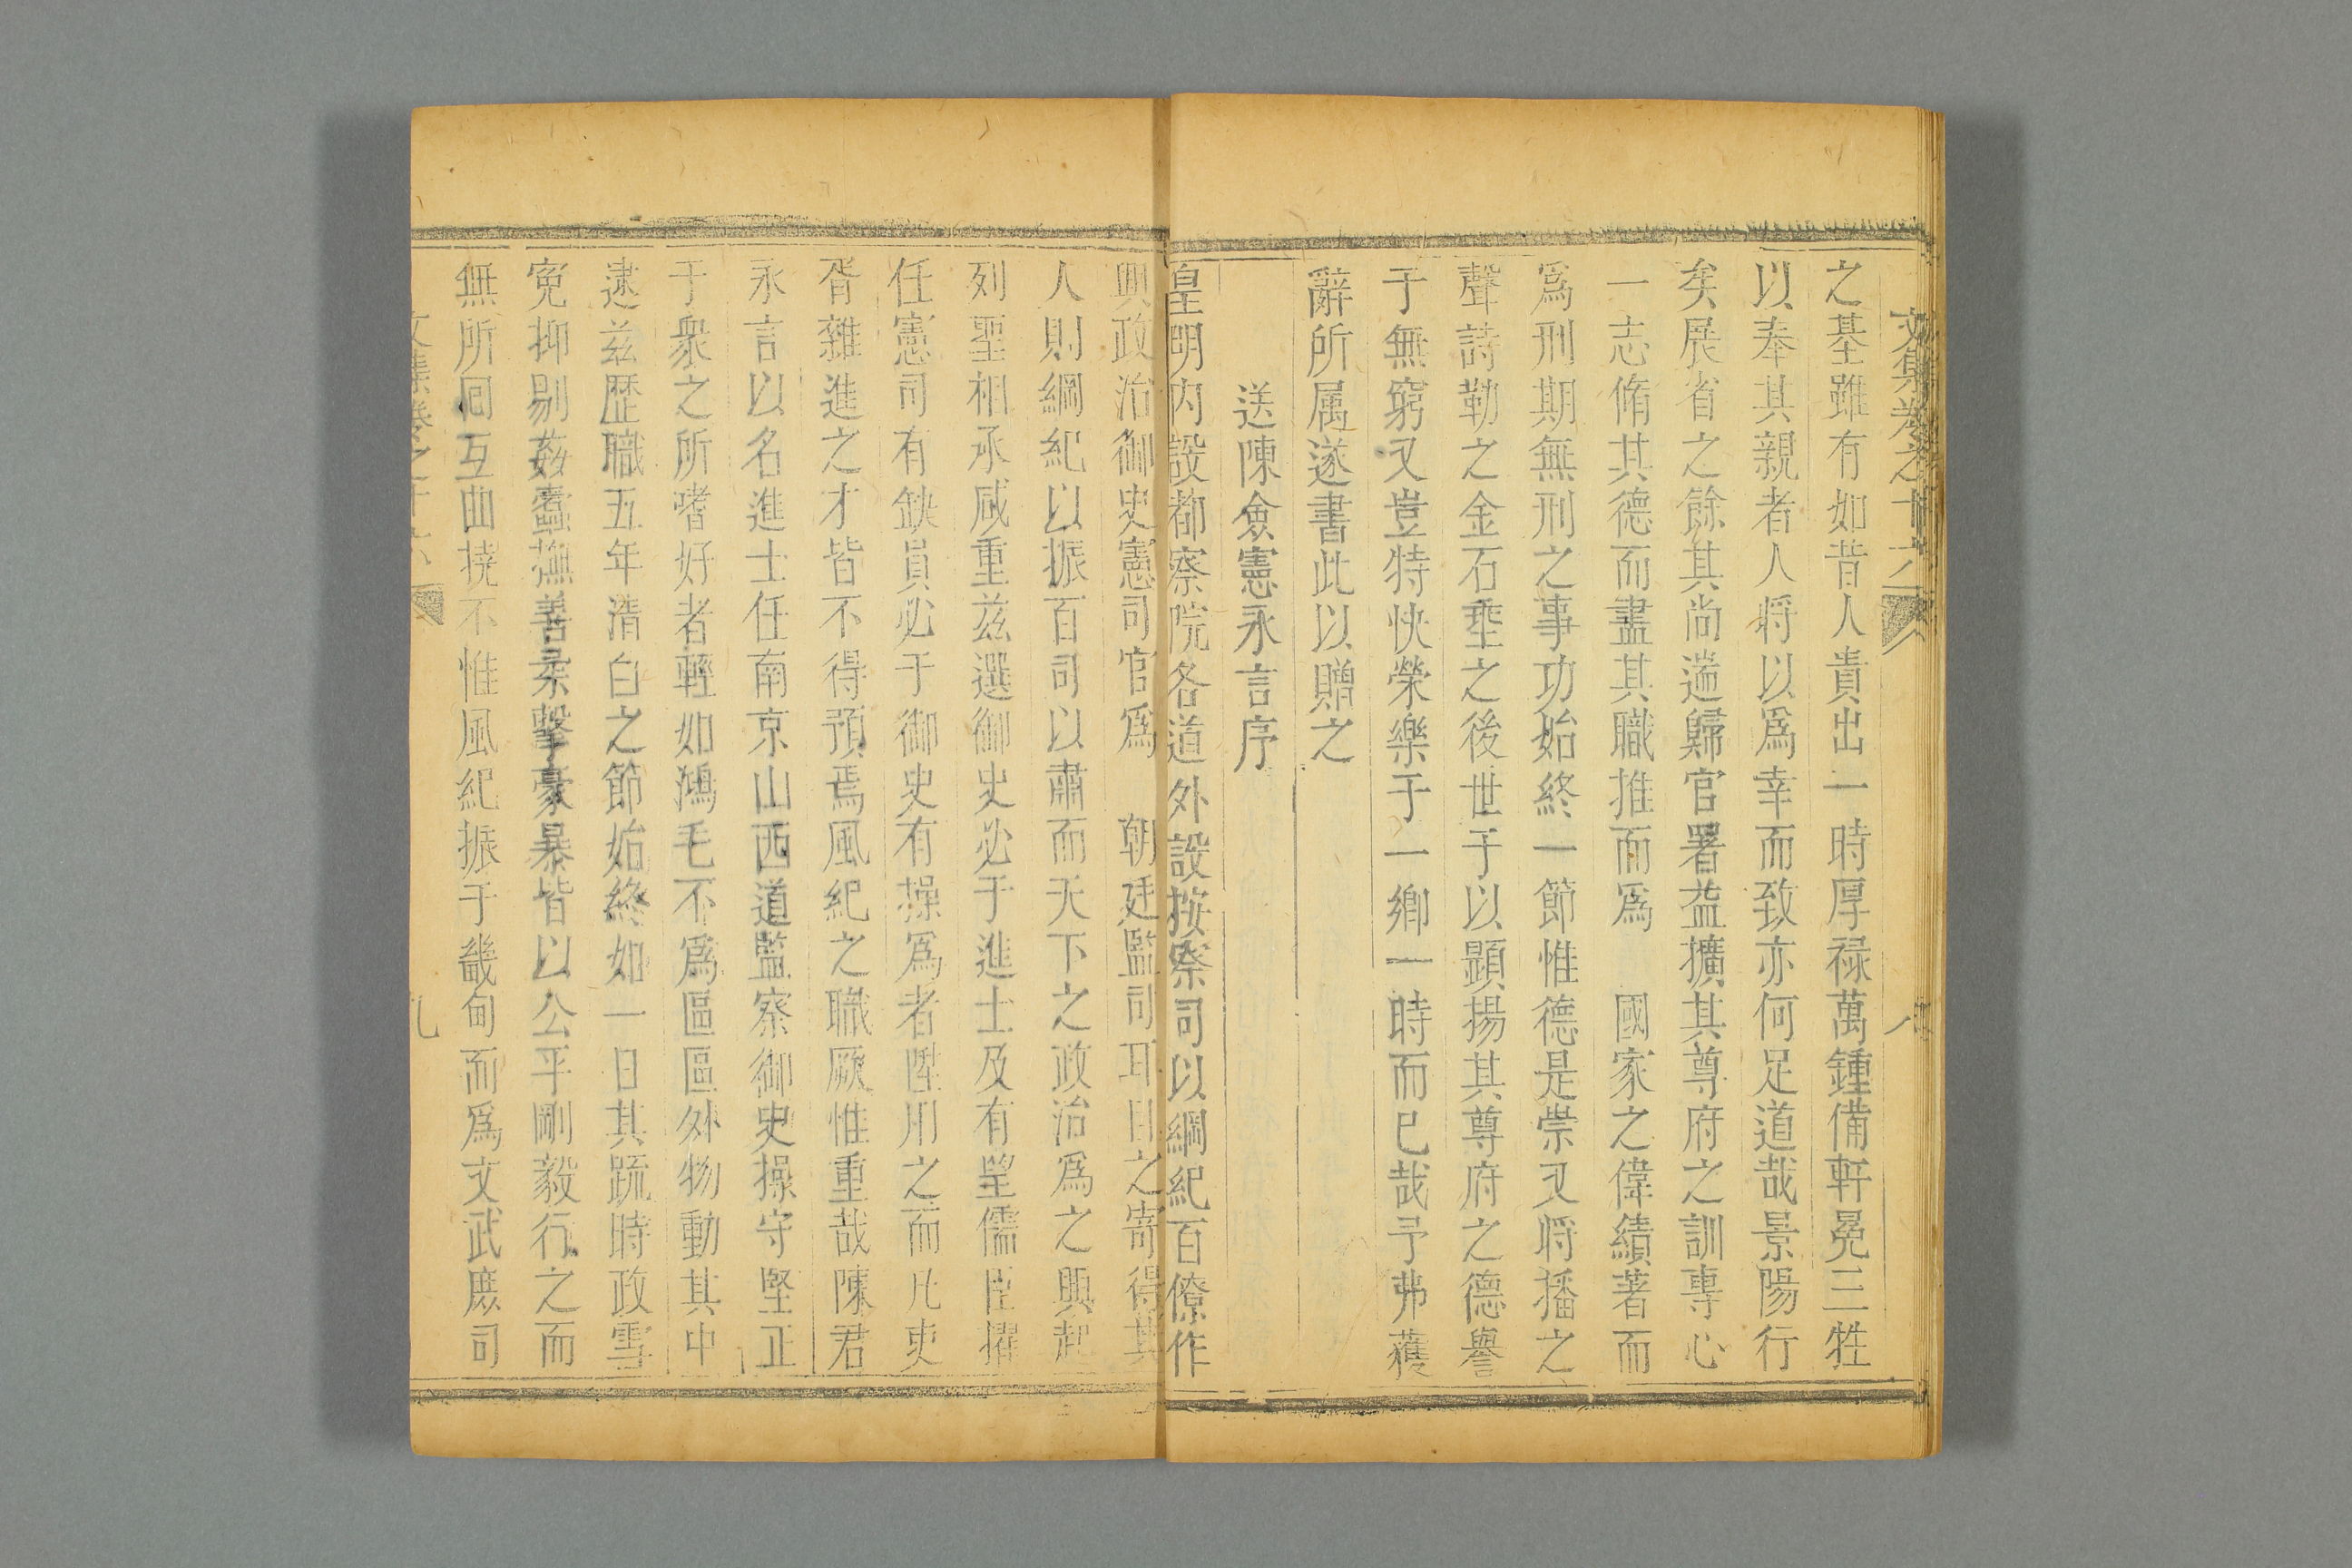 之基雖有如昔人貴出一時厚祿萬鍾備軒冕三牲
以奉其親者人將以爲幸而致亦何足道哉景陽行
矣展省之餘其尚遄歸官署益擴其尊府之訓專心
一志脩其德而盡其職推而爲 國家之偉績著而
爲刑期無刑之事功始終一節惟德是崇又將播之
聲詩勒之金石垂之後世于以顯揚其尊府之德譽
于無窮又豈特快榮樂于一鄉一時而已哉予弗獲
辭所属遂書此以贈之
送陳僉憲永言序
皇明内設都察院各道外設按察司以綱紀百僚作
興政治御史憲司官爲 朝廷監司耳目之寄得其
人則綱紀以振百司以肅而天下之政治爲之興起
列聖相承咸重茲選御史必于進士及有望儒臣擢
任憲司有缺員必于御史有操爲者陞用之而凡吏
胥雜進之才皆不得預焉風紀之職厥惟重哉陳君
永言以名進士任南京山西道監察御史操守堅正
于衆之所嗜好者輕如鴻毛不爲區區外物動其中
逮茲歷職五年清白之節始終如一日其疏時政雪
寃抑剔姦蠹撫善柔擊豪暴皆以公平剛毅行之而
無所回互曲撓不惟風紀振于畿甸而爲文武庶司
文集卷之十六
九